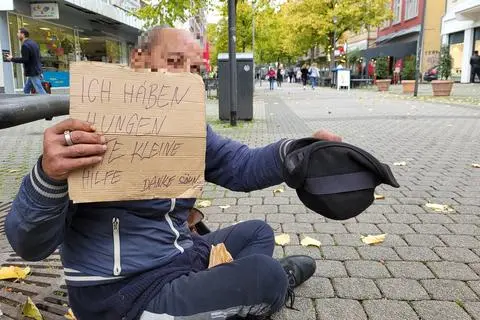 ICH HABEN
HUNGEN
KLEINE
HILFE DANKE SCHÖN